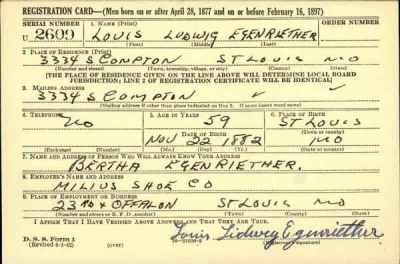 REGISTRATION CARD—(Men born on or after April 28, 1877 and on or before February 16, 1897)
SERIAL NUMBER 1. NAME (Print) ORDER NUMBER
U 2609 LOUIS LUDWIG EGENRIETHER
(First) (Middle) (Last)
2. PLACE OF RESIDENCE (Print)
3334 S COMPTON ST LOUIS MO
(Number and street) (Town, township, village, or city) (County) (State)
[THE PLACE OF RESIDENCE GIVEN ON THE LINE ABOVE WILL DETERMINE LOCAL BOARD
JURISDICTION; LINE 2 OF REGISTRATION CERTIFICATE WILL BE IDENTICAL]
3. MAILING ADDRESS
3334 S COMPTON
[Mailing address if other than place indicated on line 2. If same insert word same]
4. TELEPHONE 5. AGE IN YEARS 6. PLACE OF BIRTH
NO 59 ST LOUIS
DATE OF BIRTH (Town or county)
NOV 22 1882 MO
(Exchange) (Number) (Mo.) (Day) (Yr.) (State or country)
7. NAME AND ADDRESS OF PERSON WHO WILL ALWAYS KNOW YOUR ADDRESS
BERTHA EGENRIETHER.
8. EMPLOYER'S NAME AND ADDRESS
MILIUS SHOE CO
9. PLACE OF EMPLOYMENT OR BUSINESS
23RD & OFFALON ST LOUIS MO
(Number and street or R. F. D. number) (Town) (County) (State)
I AFFIRM THAT I HAVE VERIFIED ABOVE ANSWERS AND THAT THEY ARE TRUE.
D. S. S. Form 1
(Revised 4-1-42) (over) Louis Lidweg Egenriether